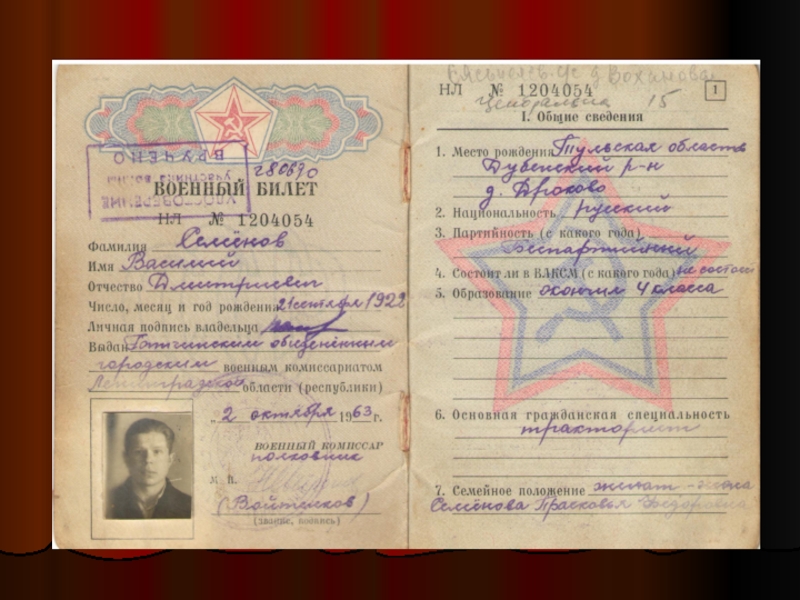 УДОСТОВЕРЕНИЕ
участника войны
ВРУЧЕНО
280690
ВОЕННЫЙ БИЛЕТ
НЛ № 1204054
Фамилия Семёнов
Имя Василий
Отчество Дмитриевич
Число, месяц и год рождения 21 сентября 1922
Личная подпись владельца
Выдан Гатчинским объединённым
городским военным комиссариатом
Ленинградской области (республики)
„2 октября 1963 г.
ВОЕННЫЙ КОМИССАР
полковник
М. П.
(Войтенков)
(звание, подпись)
д Воханово
НЛ № 1204054
1
Центральная 15
I. Общие сведения
1. Место рождения Тульская область
Дубенский р-н
2. Национальность русский
3. Партийность (с какого года)
Беспартийный
4. Состоит ли в ВЛКСМ (с какого года) не состоит
5. Образование окончил 4 класса
6. Основная гражданская специальность
тракторист
7. Семейное положение женат - жена
Семёнова Прасковья Фёдоровна